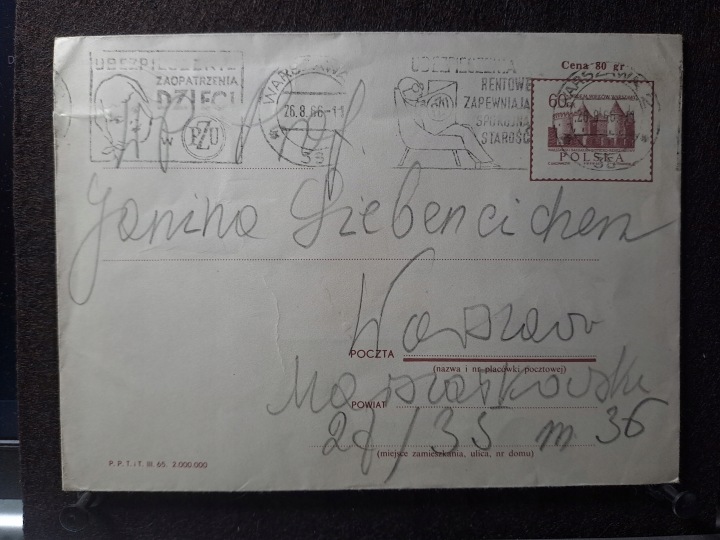 UBEZPIECZENIE
ZAOPATRZENIA
DZIECI
w PZU
WARSZAWA
26.8.66-11
UBEZPIECZENIA
RENTOWE
ZAPEWNIAJĄ
SPOKOJNĄ
STAROŚĆ
Cena 80 gr
60
POLSKA
Janina
Warszawa
POCZTA
(nazwa i nr placówki pocztowej)
Marszałkowska
POWIAT
28/35 m 36
(miejsce zamieszkania, ulica, nr domu)
P. P. T. i T. III. 65. 2.000.000